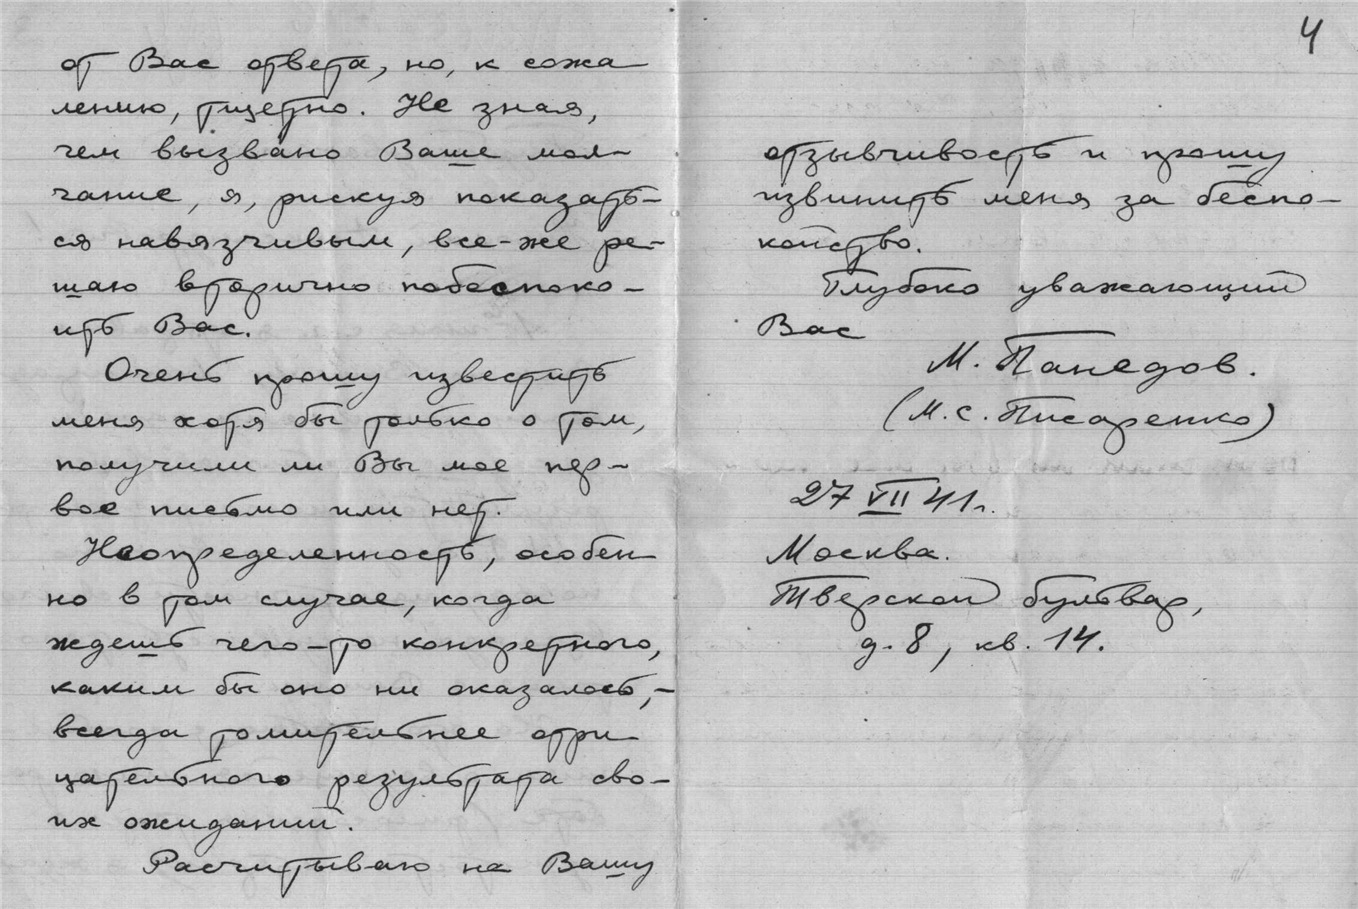 от Вас ответа, но, к сожа-
лению, тщетно. Не зная,
чем вызвано Ваше мол-
чание, я, рискуя показать-
ся навязчивым, все-же ре-
шаю вторично побеспоко-
ить Вас.
Очень прошу известить
меня хотя бы только о том,
получили ли Вы мое пер-
вое письмо или нет.
Неопределенность, особен-
но в том случае, когда
ждешь чего-то конкретного,
каким бы оно ни оказалось,-
всегда томительнее отри-
цательного результата сво-
их ожиданий.
Расчитываю на Вашу
4
отзывчивость и прошу
извинить меня за беспо-
койство.
Глубоко уважающий
Вас
М. Панедов.
(М.С. Писаренко)
27 VII 41 г.
Москва.
Тверской бульвар,
д. 8, кв. 14.